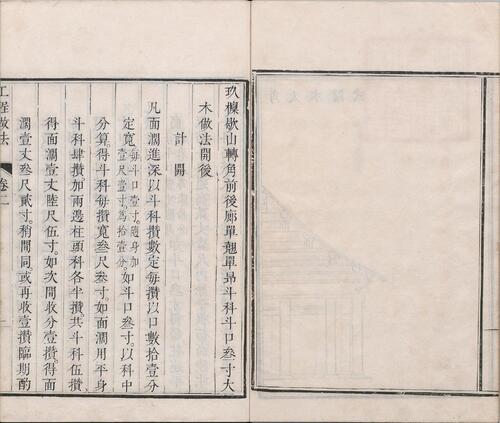 玖檁歇山轉角前後廊單翹單昂斗科斗口叁寸大
木做法開後
計開
凡面濶進深以斗科攢數定每攢以口數拾壹分
定寬每斗口壹寸隨身加壹尺壹寸為拾壹分如斗口叁寸。以科中
分算。得斗科每攢寬叁尺叁寸。如面濶用平身
斗科肆攢加兩邊柱頭科各半攢。共斗科伍攢
得面濶壹丈陸尺伍寸。如次間收分壹攢。得面
濶壹丈叁尺貳寸。稍間同。或再收壹攢臨期酌
工程做法 卷二